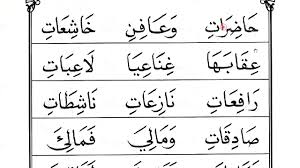 حَاضِرَاتِ وَعَافِنِ خَاشِعَاتِ
عِقَابَهَا غِنَاعِيَا لَاعِبَاتِ
رَافِعَاتِ نَازِعَاتِ نَاشِطَاتِ
صَادِقَاتِ وَمَالِيَ فَمَالِئَ